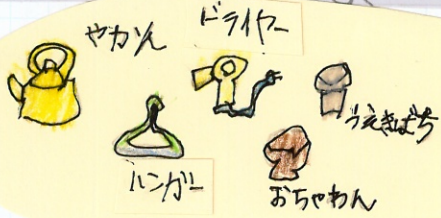 やかん
ドライヤー
ハンガー
うえきばち
おちゃわん